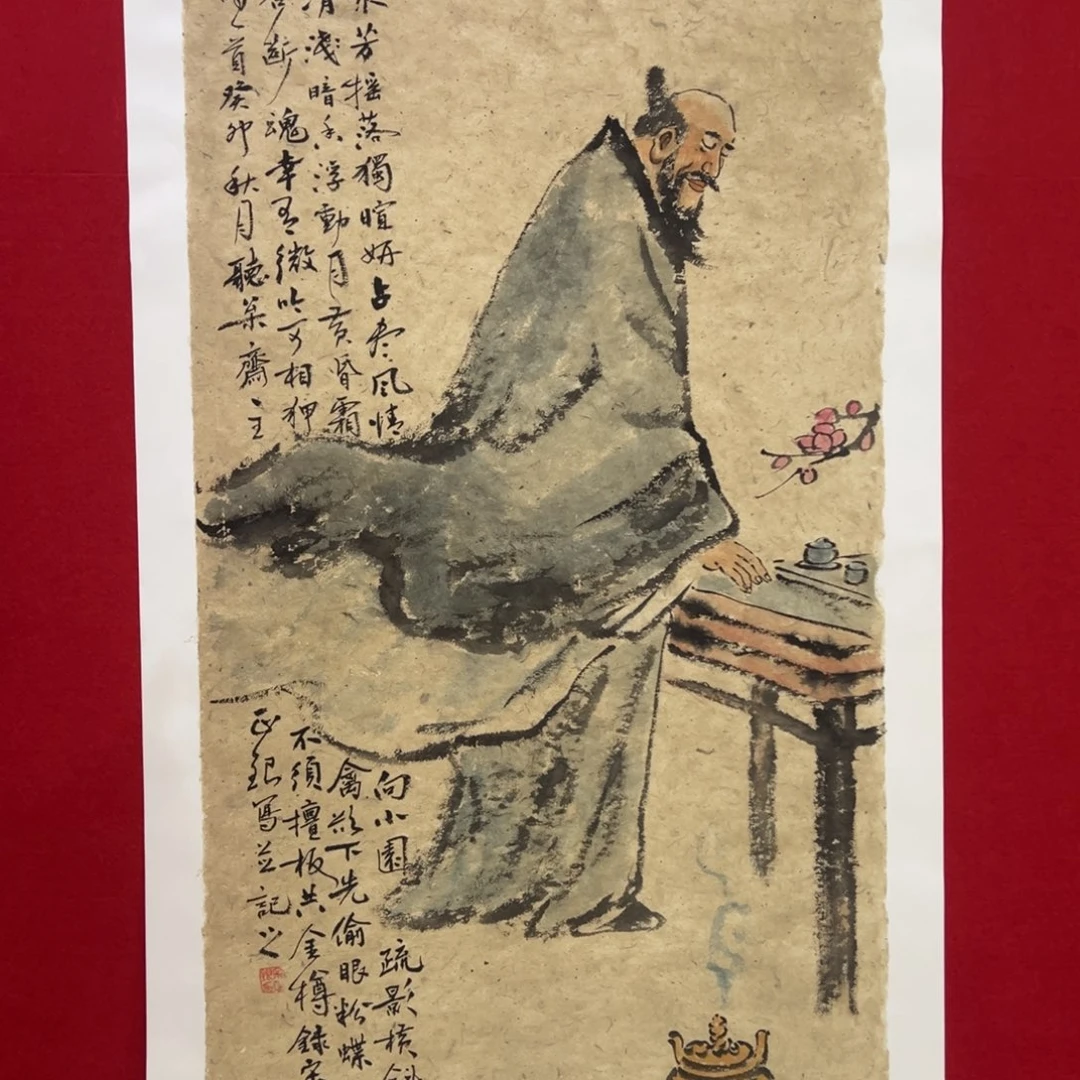 芳摇落獨暄妍占尽風情
向小園疏影横斜
清淺暗香浮動月黄昏霜
禽欲下先偷眼粉蝶
合断魂幸有微吟可相狎
不須檀板共金樽録宋
首癸卯秋月聽齋主
正銀寫並記之